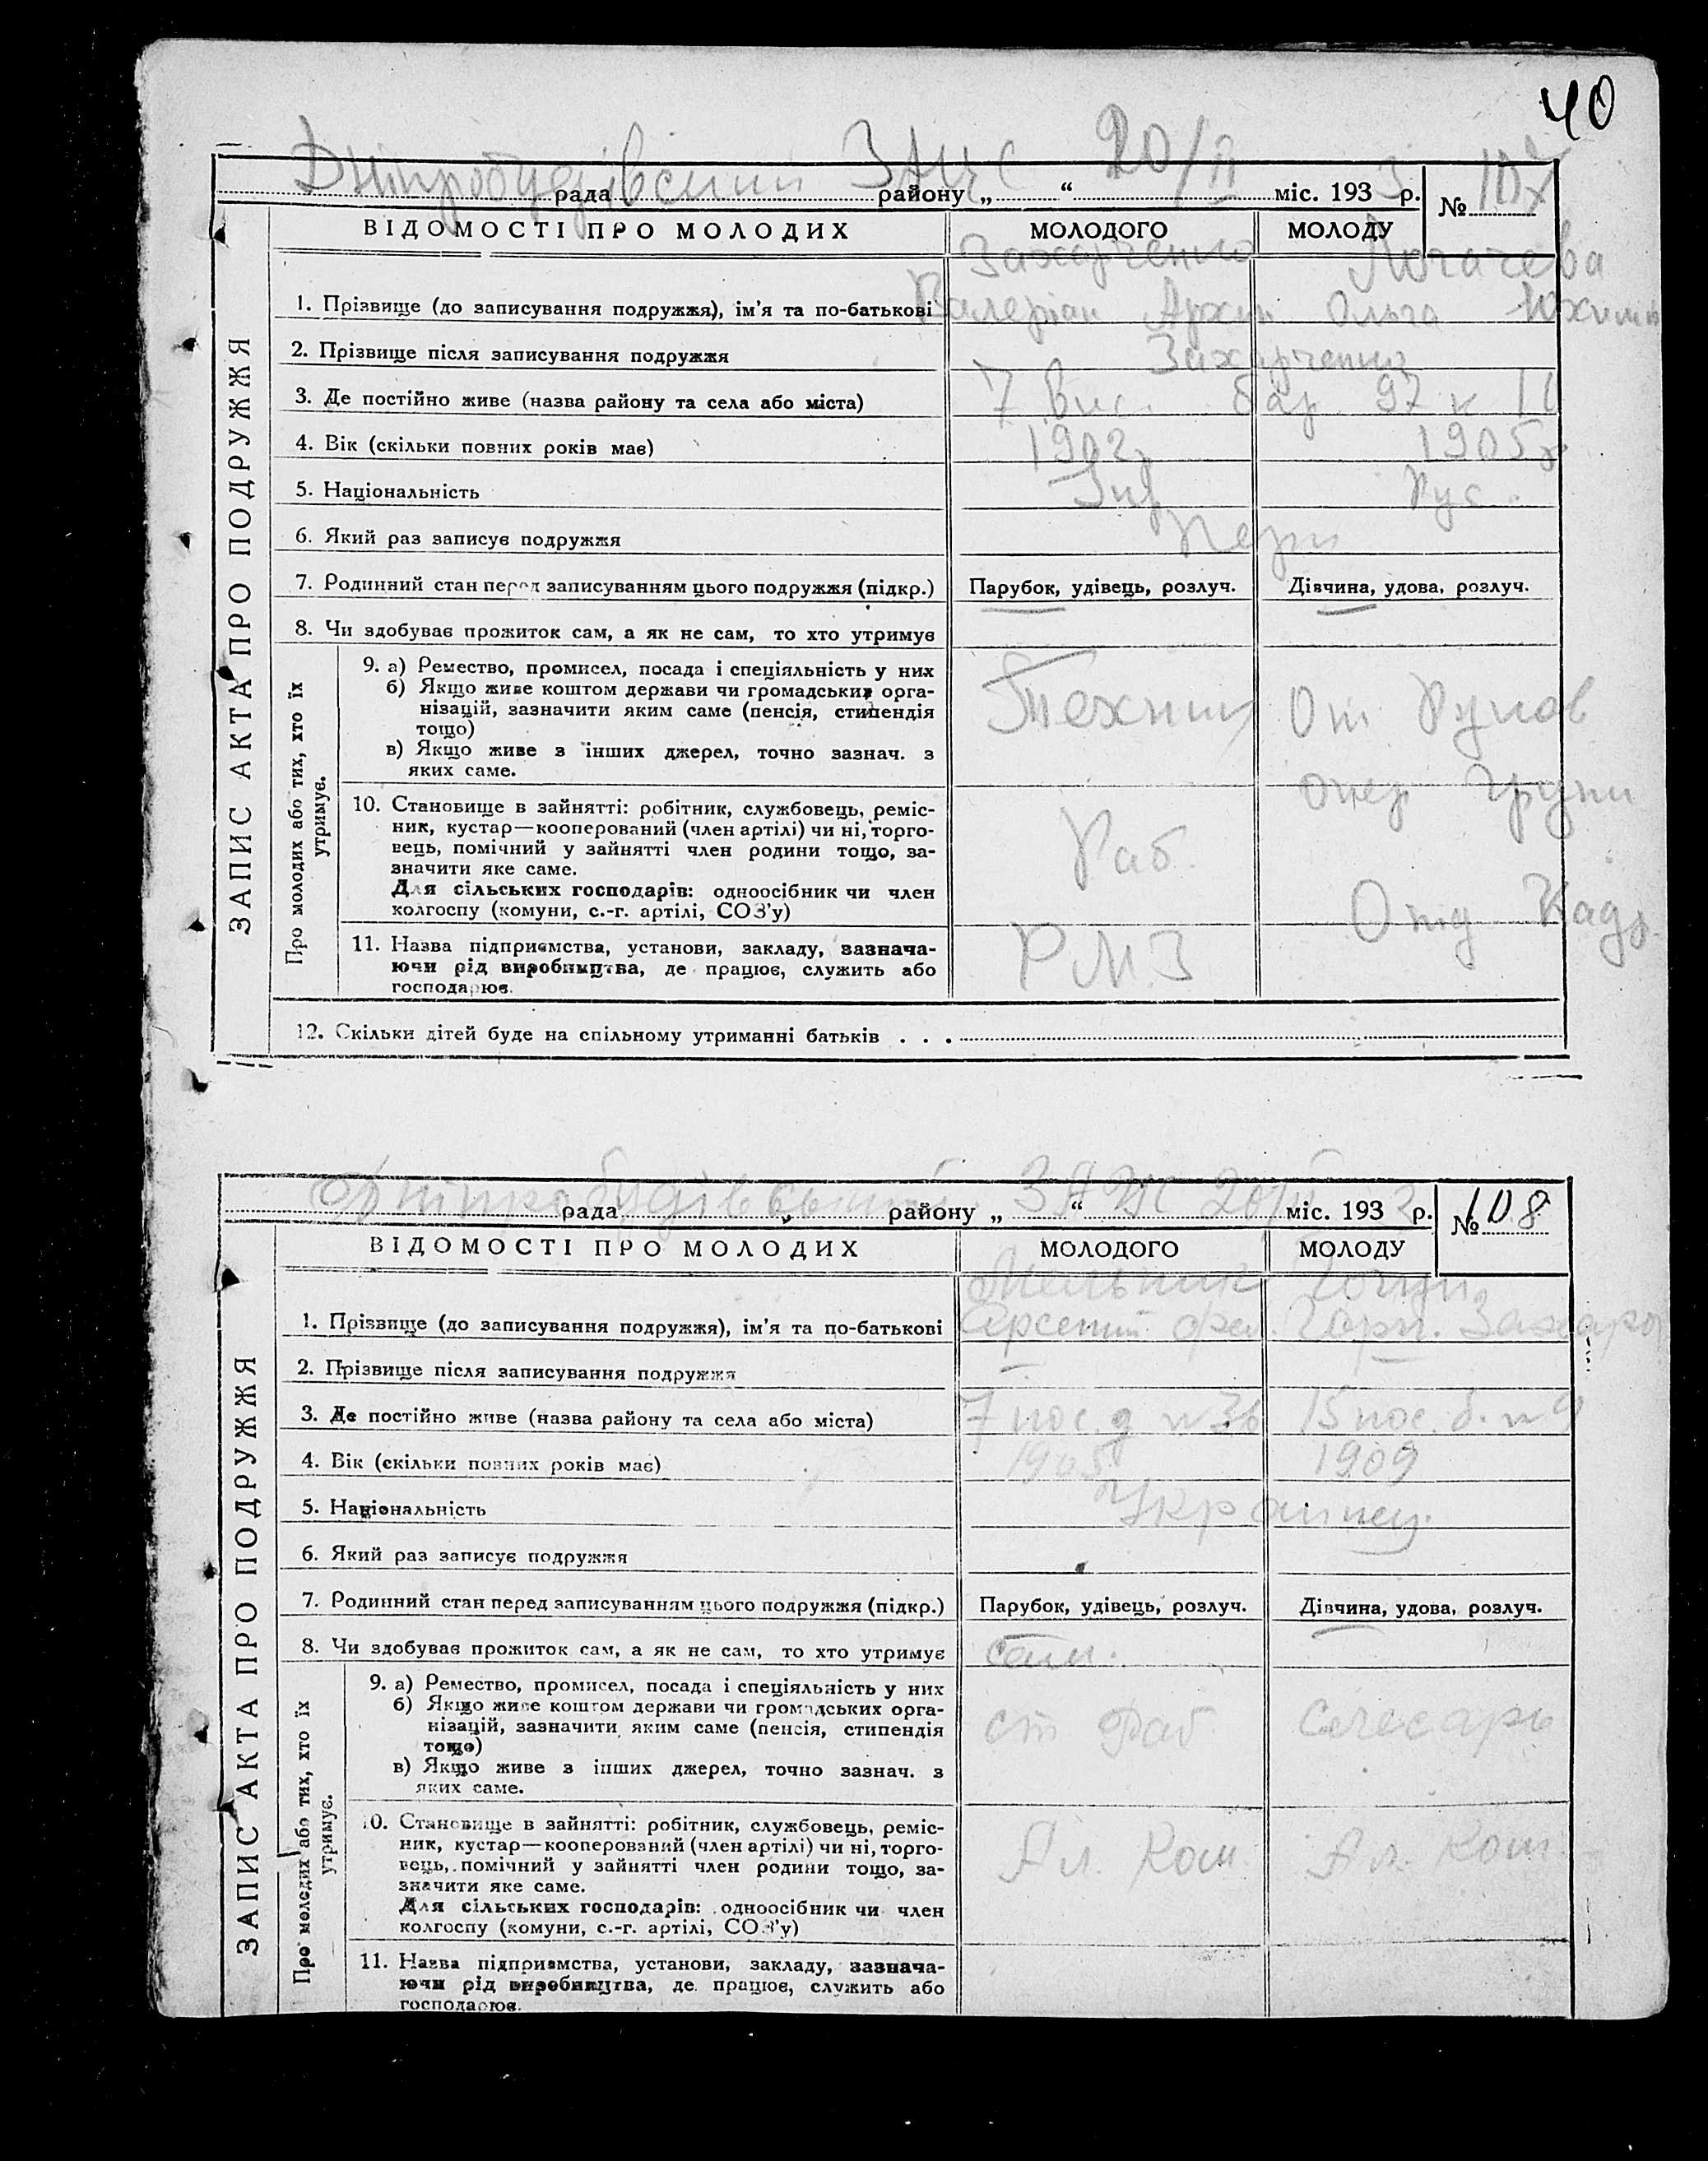 40
Дніпробудівський ЗАГС 20/II
рада району „ “ міс. 1933 р. № 107
ВІДОМОСТІ ПРО МОЛОДИХ МОЛОДОГО МОЛОДУ
Захарченко Логачева
1. Прізвище (до записування подружжя), ім'я та по-батькові Валеріан Архип Ольга Юхимів
2. Прізвище після записування подружжя Захарченко
3. Де постійно живе (назва району та села або міста) 7 вис. бар. 97 к
4. Вік (скільки повних років має) 1902р 1905р
5. Національність Рус.
6. Який раз записує подружжя Перш
7. Родинний стан перед записуванням цього подружжя (підкр.) Парубок, удівець, розлуч. Дівчина, удова, розлуч.
8. Чи здобуває прожиток сам, а як не сам, то хто утримує
9. а) Ремество, промисел, посада і спеціяльність у них
б) Якщо живе коштом держави чи громадських орга-
нізацій, зазначити яким саме (пенсія, стипендія
тощо)
в) Якщо живе з інших джерел, точно зазнач. з
яких саме.
Технік
опер групи
10. Становище в зайнятті: робітник, службовець, реміс-
ник, кустар—кооперований (член артілі) чи ні, торго-
вець, помічний у зайнятті член родини тощо, за-
значити яке саме.
Для сільських господарів: одноосібник чи член
колгоспу (комуни, с.-г. артілі, СОЗ'у)
Раб.
Отд Кадр.
11. Назва підприємства, установи, закладу, зазнача-
ючи рід виробництва, де працює, служить або
господарює.
РМЗ
12. Скільки дітей буде на спільному утриманні батьків . . .
ЗАПИС АКТА ПРО ПОДРУЖЖЯ
Про молодих або тих, хто їх
утримує.
Дніпробудівський ЗАГС 20/II
рада району „ “ міс. 193 р. № 108
ВІДОМОСТІ ПРО МОЛОДИХ МОЛОДОГО МОЛОДУ
Мельник
1. Прізвище (до записування подружжя), ім'я та по-батькові Арсений Захаро
2. Прізвище після записування подружжя — —
3. Де постійно живе (назва району та села або міста) 7 пос. д. № 36 15 пос. б. № 9
4. Вік (скільки повних років має) 1905 1909
5. Національність Украинец.
6. Який раз записує подружжя
7. Родинний стан перед записуванням цього подружжя (підкр.) Парубок, удівець, розлуч. Дівчина, удова, розлуч.
8. Чи здобуває прожиток сам, а як не сам, то хто утримує сам.
9. а) Ремество, промисел, посада і спеціяльність у них
б) Якщо живе коштом держави чи громадських орга-
нізацій, зазначити яким саме (пенсія, стипендія
тощо)
в) Якщо живе з інших джерел, точно зазнач. з
яких саме.
ст раб слесарь
10. Становище в зайнятті: робітник, службовець, реміс-
ник, кустар—кооперований (член артілі) чи ні, торго-
вець, помічний у зайнятті член родини тощо, за-
значити яке саме.
Для сільських господарів: одноосібник чи член
колгоспу (комуни, с.-г. артілі, СОЗ'у)
Ал. Ком. Ал. Ком.
11. Назва підприємства, установи, закладу, зазнача-
ючи рід виробництва, де працює, служить або
господарює.
ЗАПИС АКТА ПРО ПОДРУЖЖЯ
Про молодих або тих, хто їх
утримує.